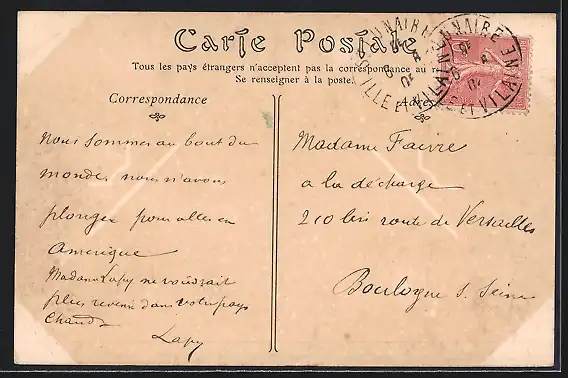 Carte Postale
Tous les pays étrangers n'acceptent pas la correspondance au
Se renseigner à la poste.
Correspondance
nous sommes au bout du
monde nous n'avons
plonger pour aller en
amerique
Madame Lapy ne voudrait
plus revenir dans votre pays
chaud
Lapy
Madame Faivre
a la décharge
210 bis route de Versailles
Boulogne s. Seine
DINARD
ILLE ET VILAINE